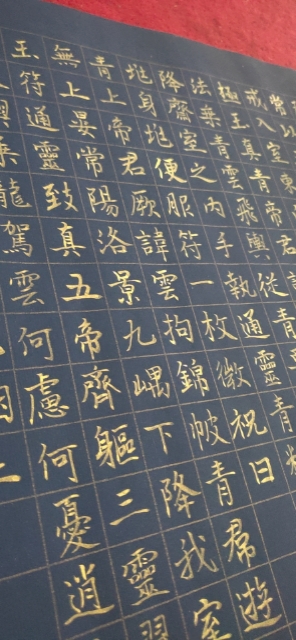 常以
戒入室東
極玉真青帝君
法乘青雲飛輿從青
降齋室之內手執通靈青
圯身地便服符一枚微祝曰
青上帝君厥諱雲拘錦帔青帬遊
無上晏常陽洛景九嵎下降我室
玉符通靈致真五帝齊軀三靈
乘龍駕雲何慮何憂逍